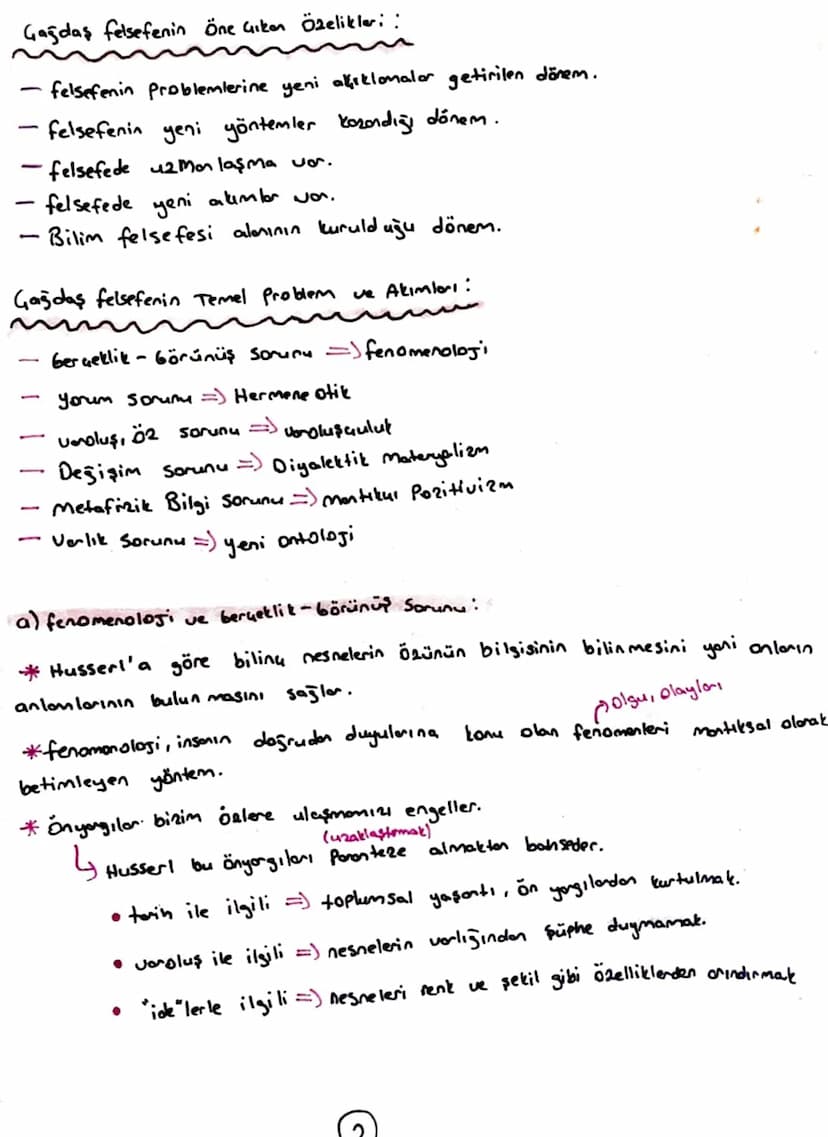 Çağdaş felsefenin Öne Çıkan Özelikleri:
— felsefenin Problemlerine yeni açıklamalar getirilen dönem.
— felsefenin yeni yöntemler kazandığı dönem.
— felsefede uzmanlaşma var.
— felsefede yeni akımlar var.
— Bilim felsefesi alanının kurulduğu dönem.
Çağdaş felsefenin Temel Problem ve Akımları:
— Gerçeklik - Görünüş Sorunu => fenomenoloji
— Yorum sorunu => Hermeneotik
— Varoluş, Öz sorunu => Varoluşçuluk
— Değişim sorunu => Diyalektik Materyalizm
— Metafizik Bilgi Sorunu => Mantıkçı Pozitivizm
— Varlık Sorunu => yeni ontoloji
a) fenomenoloji ve Gerçeklik - Görünüş Sorunu:
* Husserl'a göre bilinç nesnelerin özünün bilgisinin bilinmesini yani onların
anlamlarının bulunmasını sağlar.
Olgu, Olayları
* fenomonoloji, insanın doğrudan duyularına konu olan fenomenleri mantıksal olarak
betimleyen yöntem.
* Önyargılar bizim özlere ulaşmamızı engeller.
(uzaklaştırmak)
Husserl bu önyargıları Paranteze almaktan bahseder.
• tarih ile ilgili => toplumsal yaşantı, ön yargılardan kurtulmak.
• varoluş ile ilgili => nesnelerin varlığından şüphe duymamak.
• "ide"lerle ilgili => nesneleri renk ve şekil gibi özelliklerden arındırmak
2